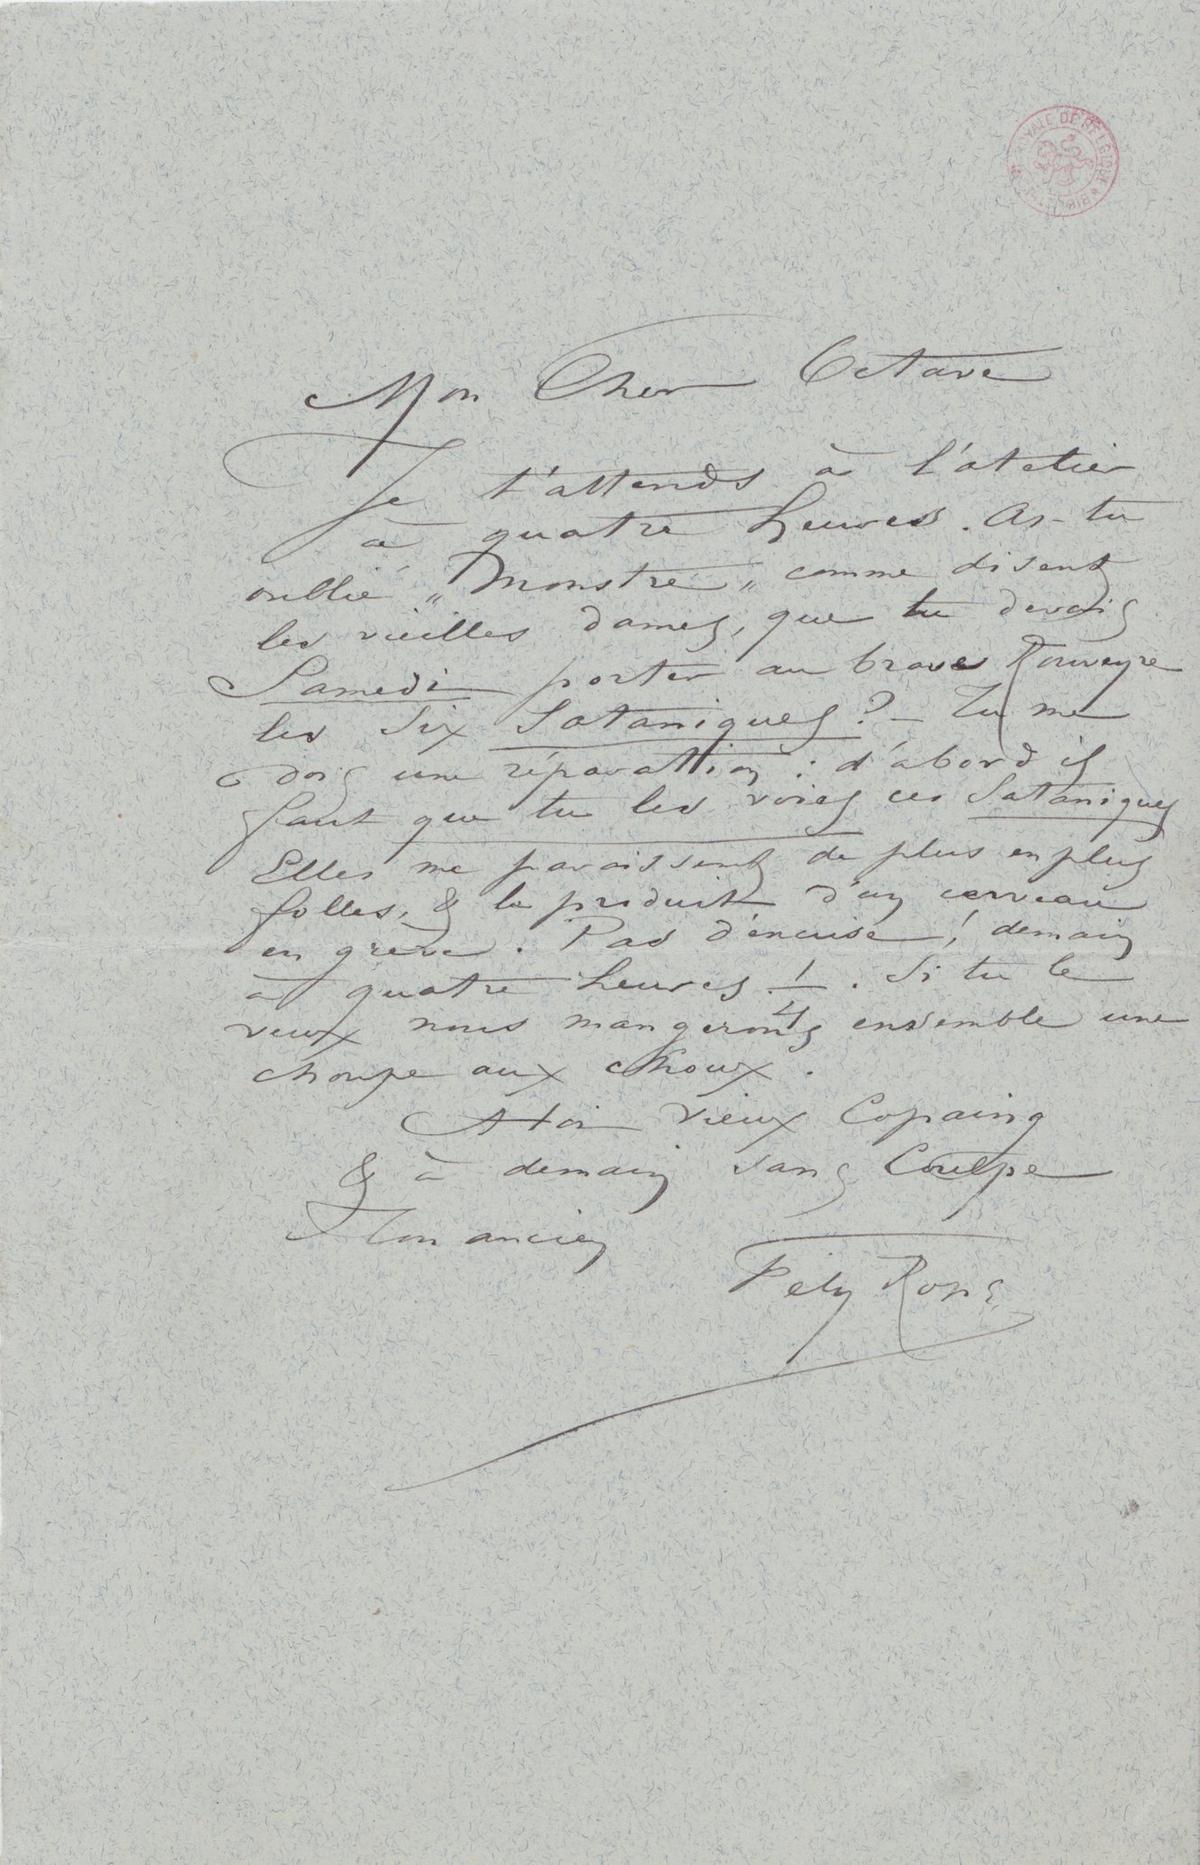 YALE DE BELGIQUE * BIB
Mon Cher Octave
Je t'attends à l'atelier
à quatre heures. As-tu
oublié „Monstre„ comme disent
les vieilles dames, que tu devais
Samedi porter au brave Rouveyre
les six Sataniques? _ Tu me
dois une réparation : d'abord il
faut que tu les voies ces Sataniques
Elles me paraissent de plus en plus
folles, & le produit d'un cerveau
en grève. Pas d'encuse! demain
à quatre heures 1/4. Si tu le
veux nous mangerons ensemble une
choupe aux choux.
A toi vieux Copaing
& à demain sans Coulpe
Ton ancien
Fély Rops